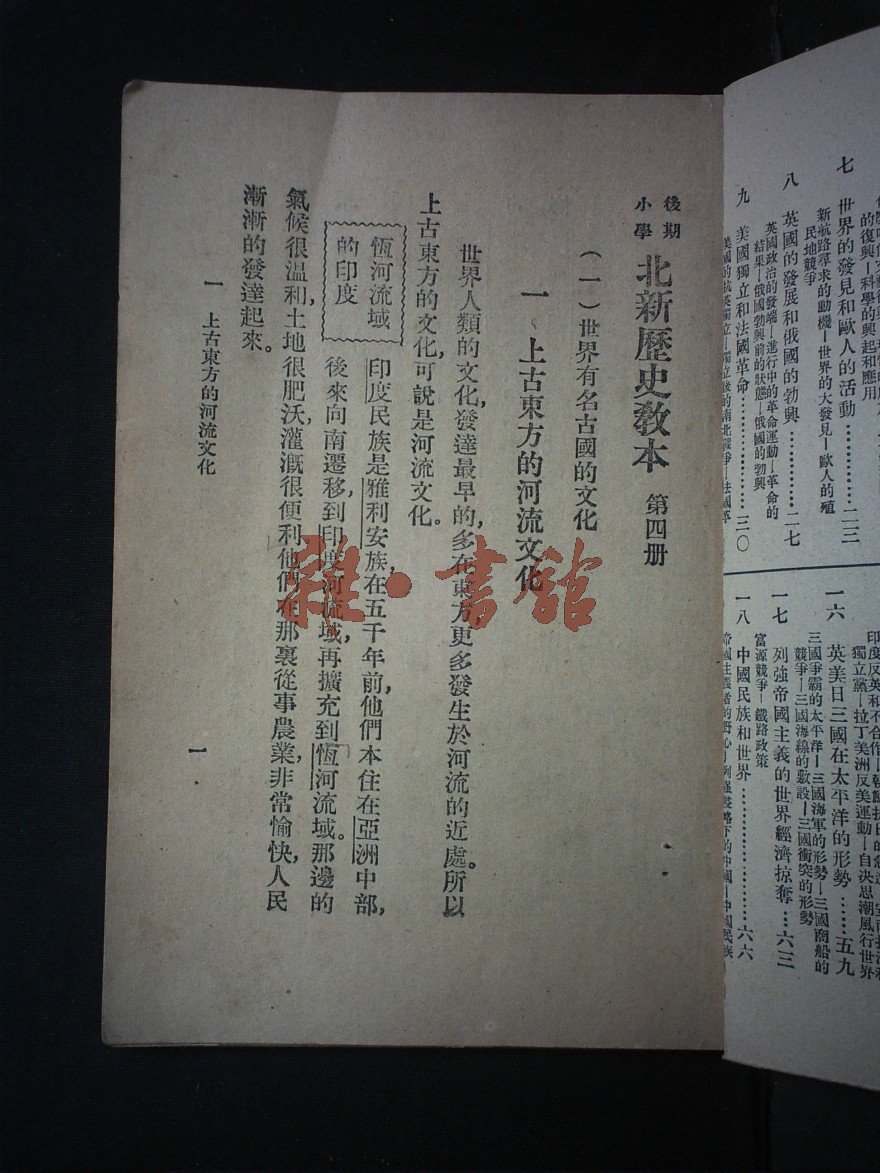 的復興—科學的興起和應用
七 世界的發見和歐人的活動…………二三
新航路尋求的動機—世界的大發見—歐人的殖
民地競爭
八 英國的發展和俄國的勃興…………二七
英國政治的發端—進行中的革命運動—革命的
結果—俄國勃興前的狀態—俄國的勃興
九 美國獨立和法國革命…………三〇
印度反英和不合作
獨立黨—拉丁美洲反美運動—自決思潮風行世界
一六 英美日三國在太平洋的形勢……五九
三國爭霸的太平洋—三國海軍的形勢—三國商船的
競爭—三國海線的敷設—三國衝突的形勢
一七 列強帝國主義的世界經濟掠奪…六三
富源競爭—鐵路政策
一八 中國民族和世界…………六六
後期
小學
北新歷史教本 第四册
(一)世界有名古國的文化
一 上古東方的河流文化
世界人類的文化,發達最早的,多在東方,更多發生於河流的近處。所以
上古東方的文化,可說是河流文化。
恆河流域
的印度
印度民族是雅利安族,在五千年前,他們本住在亞洲中部,
後來向南遷移,到印度河流域,再擴充到恆河流域。那邊的
氣候很溫和,土地很肥沃,灌溉很便利,他們在那裏從事農業,非常愉快,人民
漸漸的發達起來。
一 上古東方的河流文化
一
雜·書館